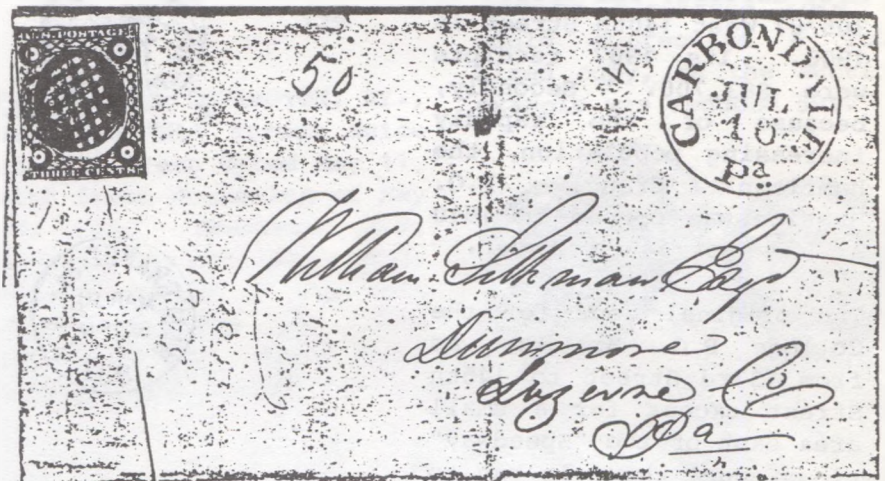 U.S. POSTAGE
THREE CENTS
50
CARBONDALE
JUL
16
Pa
William Silkman Esqr
Dunmore
Luzerne Co
Pa